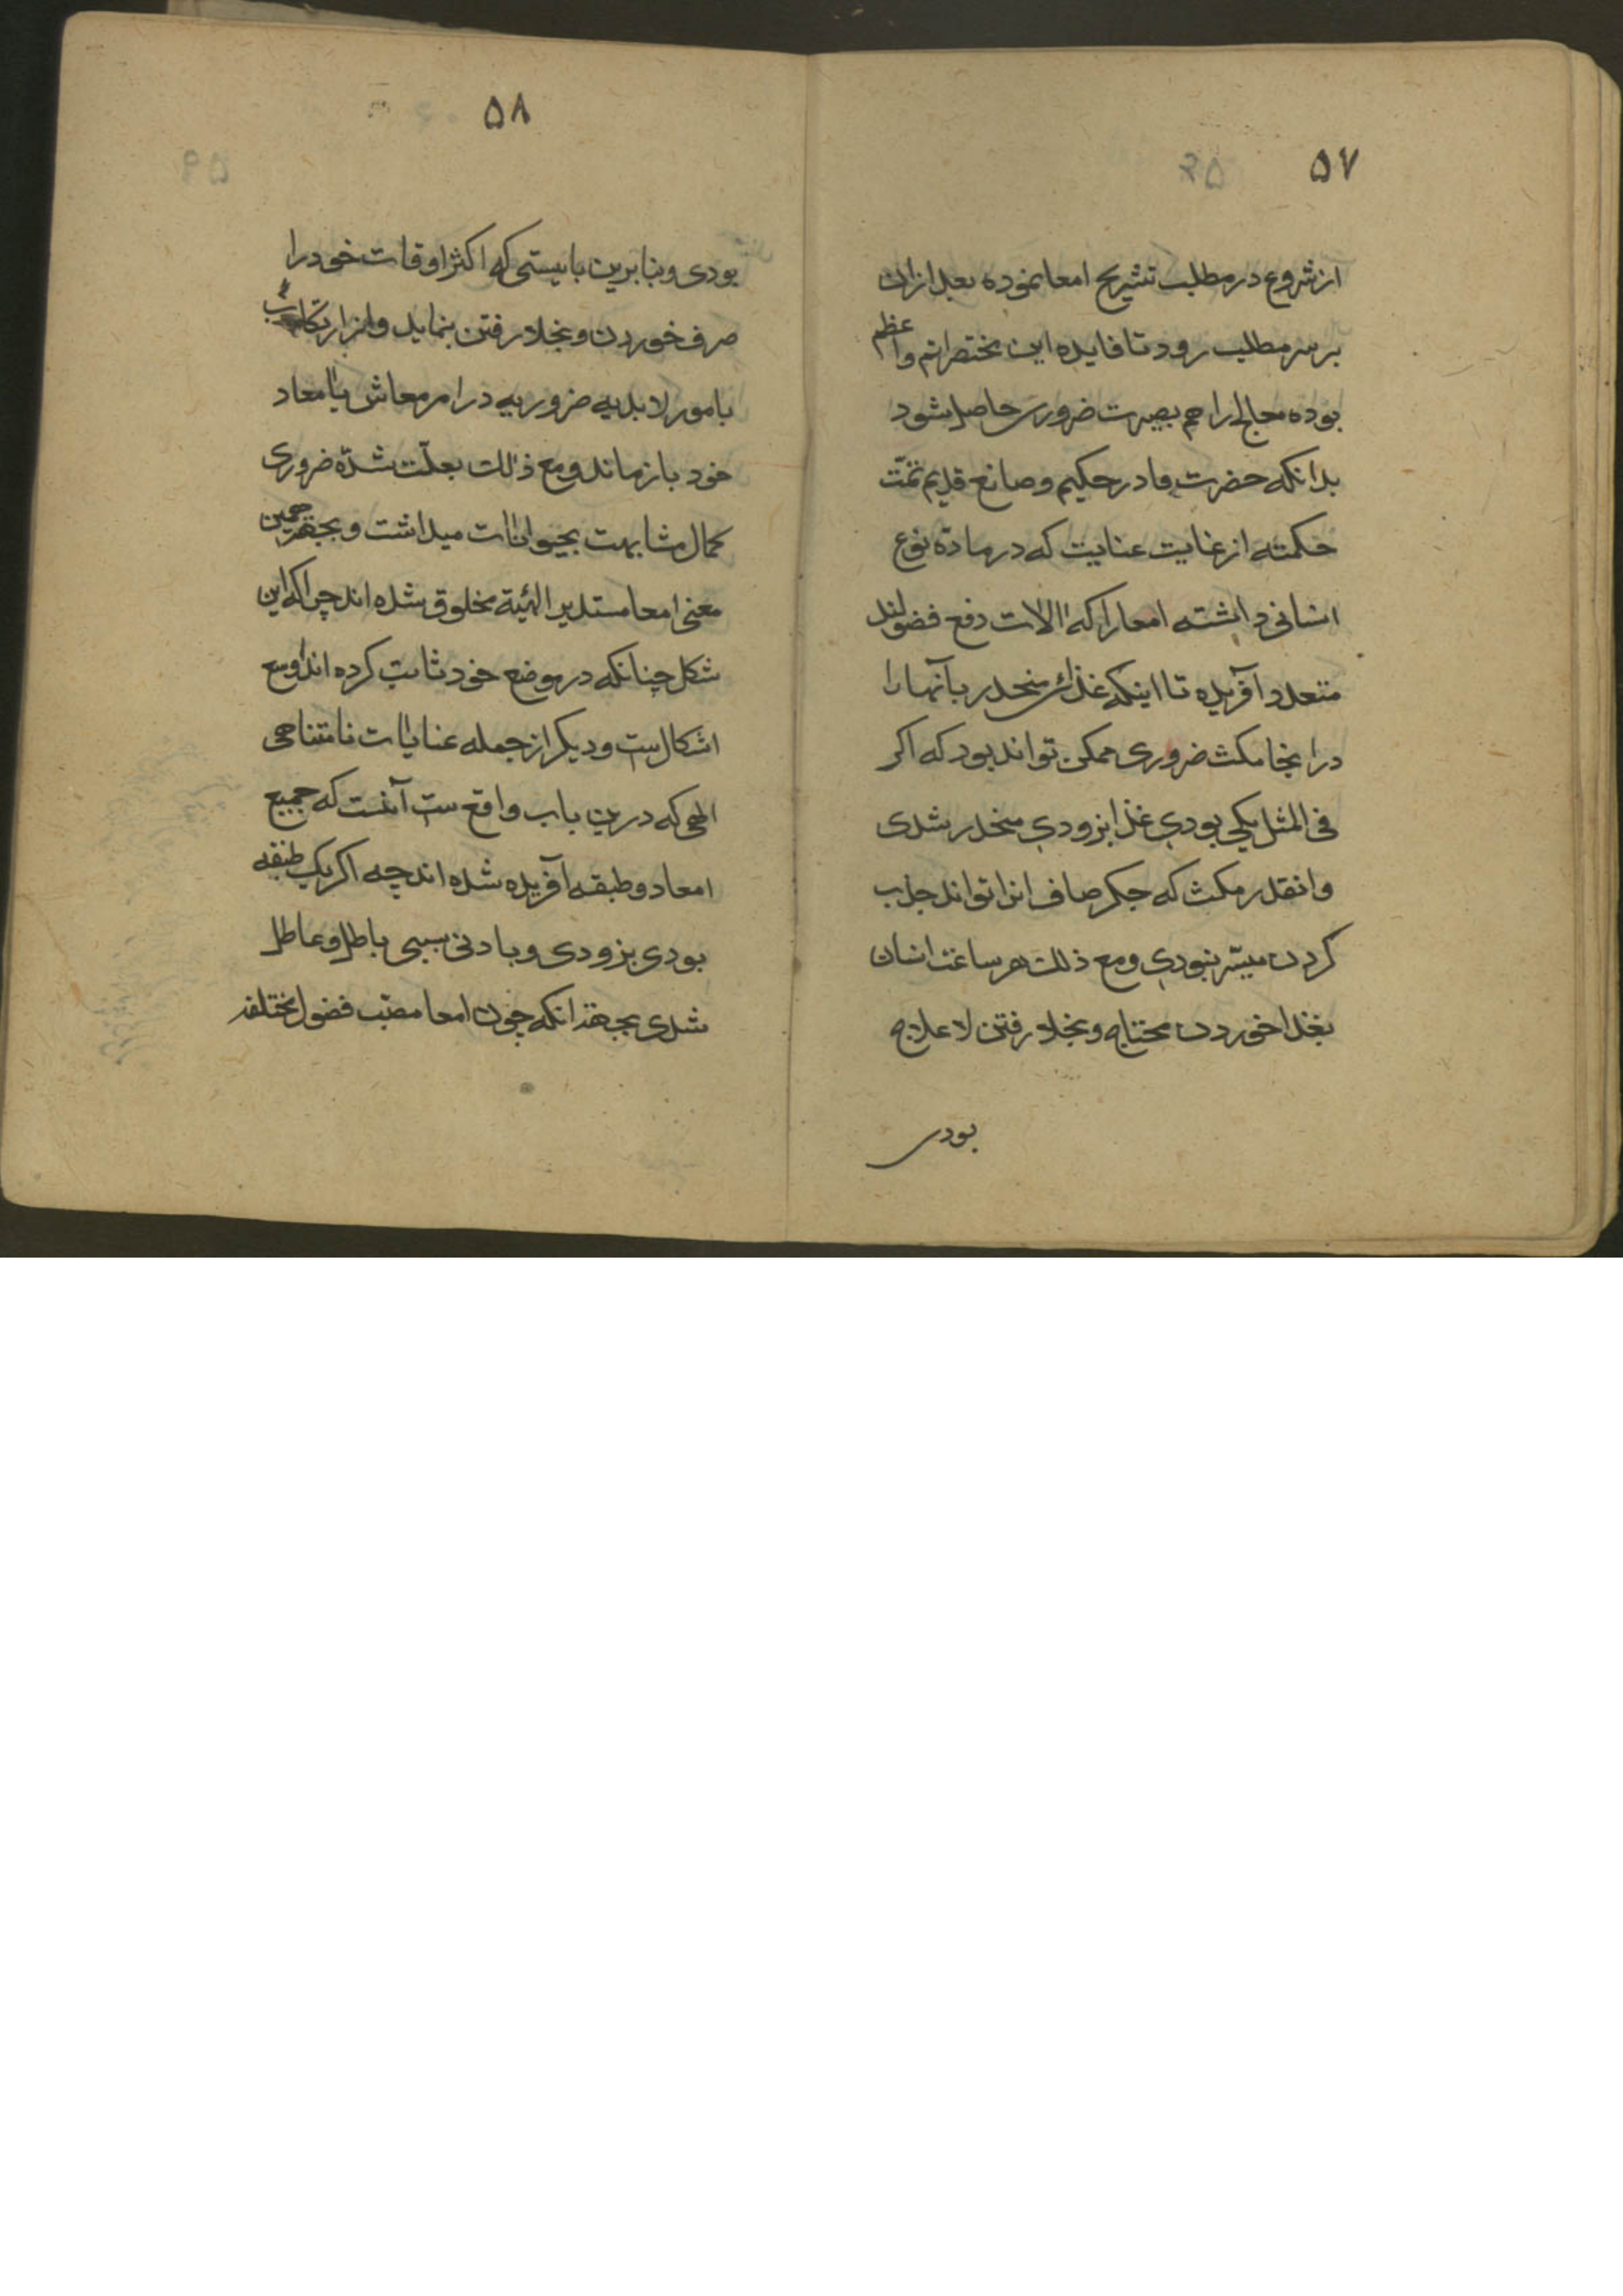 ۵۷
از شروع در مطلب تشریح امعا نموده بعد ازان
بر سر مطلب رود تا فایده این مختصر اتم و اعظم
بوده معالج را هم بصیرت ضروری حاصل شود
بدانکه حضرت قادر حکیم و صانع قدیم تمّت
حکمته از غایت عنایت که در مادّه نوع
انسانی داشته امعا را که الات دفع فضولند
متعدد آفریده تا اینکه غذای منحدر بآنها را
در اینجا مکث ضروری ممکن تواند بود که اکر
فی المثل یکی بودی غذا بزودی منحدر شدی
و انقدر مکث که جکر صاف انرا تواند جذب
کردن میسّر نبودی و مع ذلك هر ساعت انسان
بغذا خوردن محتاج و بخلا رفتن لا علاج
بودی
۵۸
بودی و بنابرین بایستی که اکثر اوقات خود را
صرف خوردن و بخلا رفتن بنماید و از ارتکاب
بامور لابدیه ضروریه در امر معاش یا معاد
خود باز ماند و مع ذلك بعلّت شدّه ضروری
کمال مشابهت بحیوانات میداشت و بجهة همین
معنی امعا مستدیر الهیئة مخلوق شده اند چرا که این
شکل چنانکه در موضع خود ثابت کرده اند اوسع
اشکال ست و دیکر از جمله عنایات نامتناهی
الهی که درین باب واقع ست آنست که جمیع
امعا دو طبقه آفریده شده اند چه اکر یک طبقه
بودی بزودی و بادنی سببی باطل و عاطل
شدی بجهة انکه چون امعا مصّب فضول مختلفه